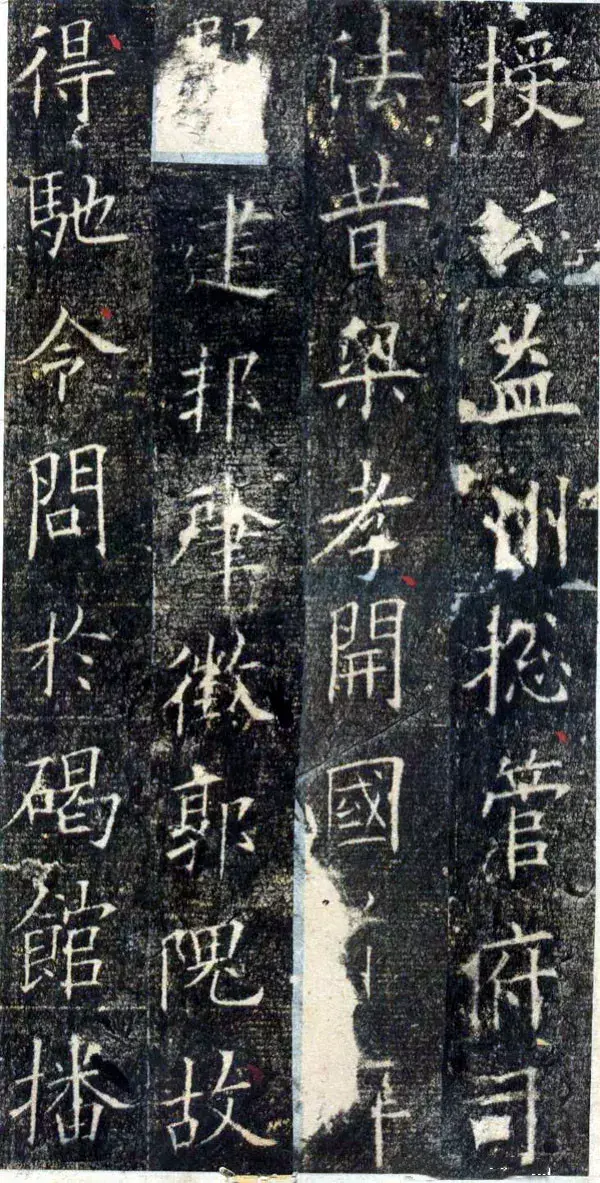 授益州揔管府司
法昔梁孝開國
建邦肇徵郭隗故
得馳令問於碣館播